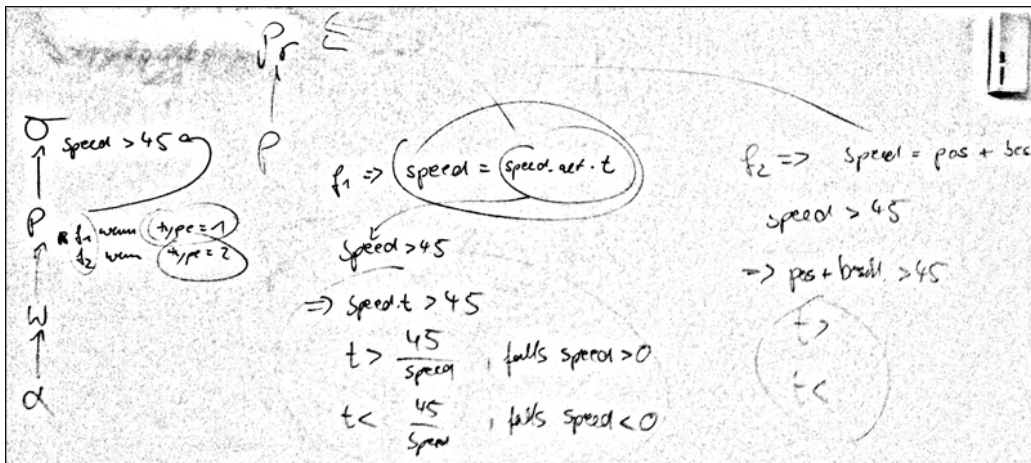 Pr
P
σ speed > 45
P f₁ wenn type = 1
f₂ wenn type = 2
W
α
f₁ => speed = speed.act · t
speed > 45
=> speed · t > 45
t > 45/speed , falls speed > 0
t < 45/speed , falls speed < 0
f₂ => speed = pos + bes
speed > 45
=> pos + besch. > 45
t >
t <